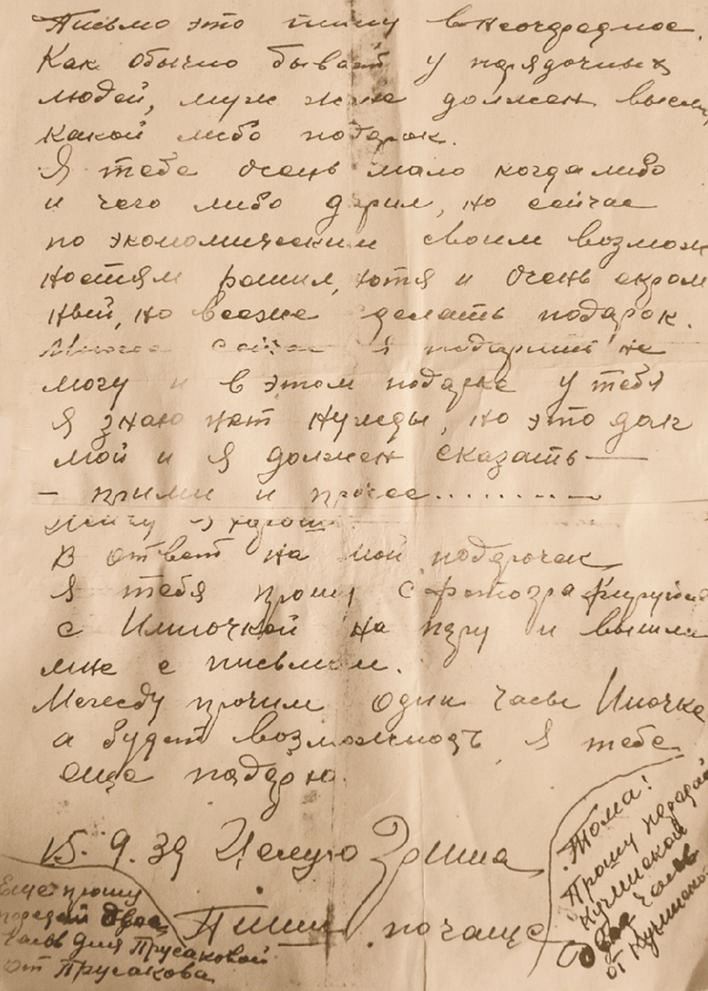 Письмо это пишу внеочередное.
Как обычно бывает у порядочных
людей, муж жене должен высл
какой либо подарок.
Я тебе очень мало когда либо
и чего либо дарил, но сейчас
по экономическим своим возмож
ностям решил, хотя и очень скром
ный, но всеже сделать подарок.
я подарить не
могу и в этом подарке у тебя
я знаю нет нужды, но это долг
мой и я должен сказать —
— прими и прочее..........—
Живу я хорошо.
В ответ на мой подарочек
я тебя прошу сфотографируйся
с Инночкой на пару и вышли
мне с письмом.
Между прочим одни часы Иночке
а будет возможность я тебе
еще подарю.
15.9.39 Целую Гриша
Пиши почаще
Еще прошу
передай двое
часы для Прусаковой
от Прусакова
Тома!
Прошу передай
Кучинской
двое часы
от Кучинского